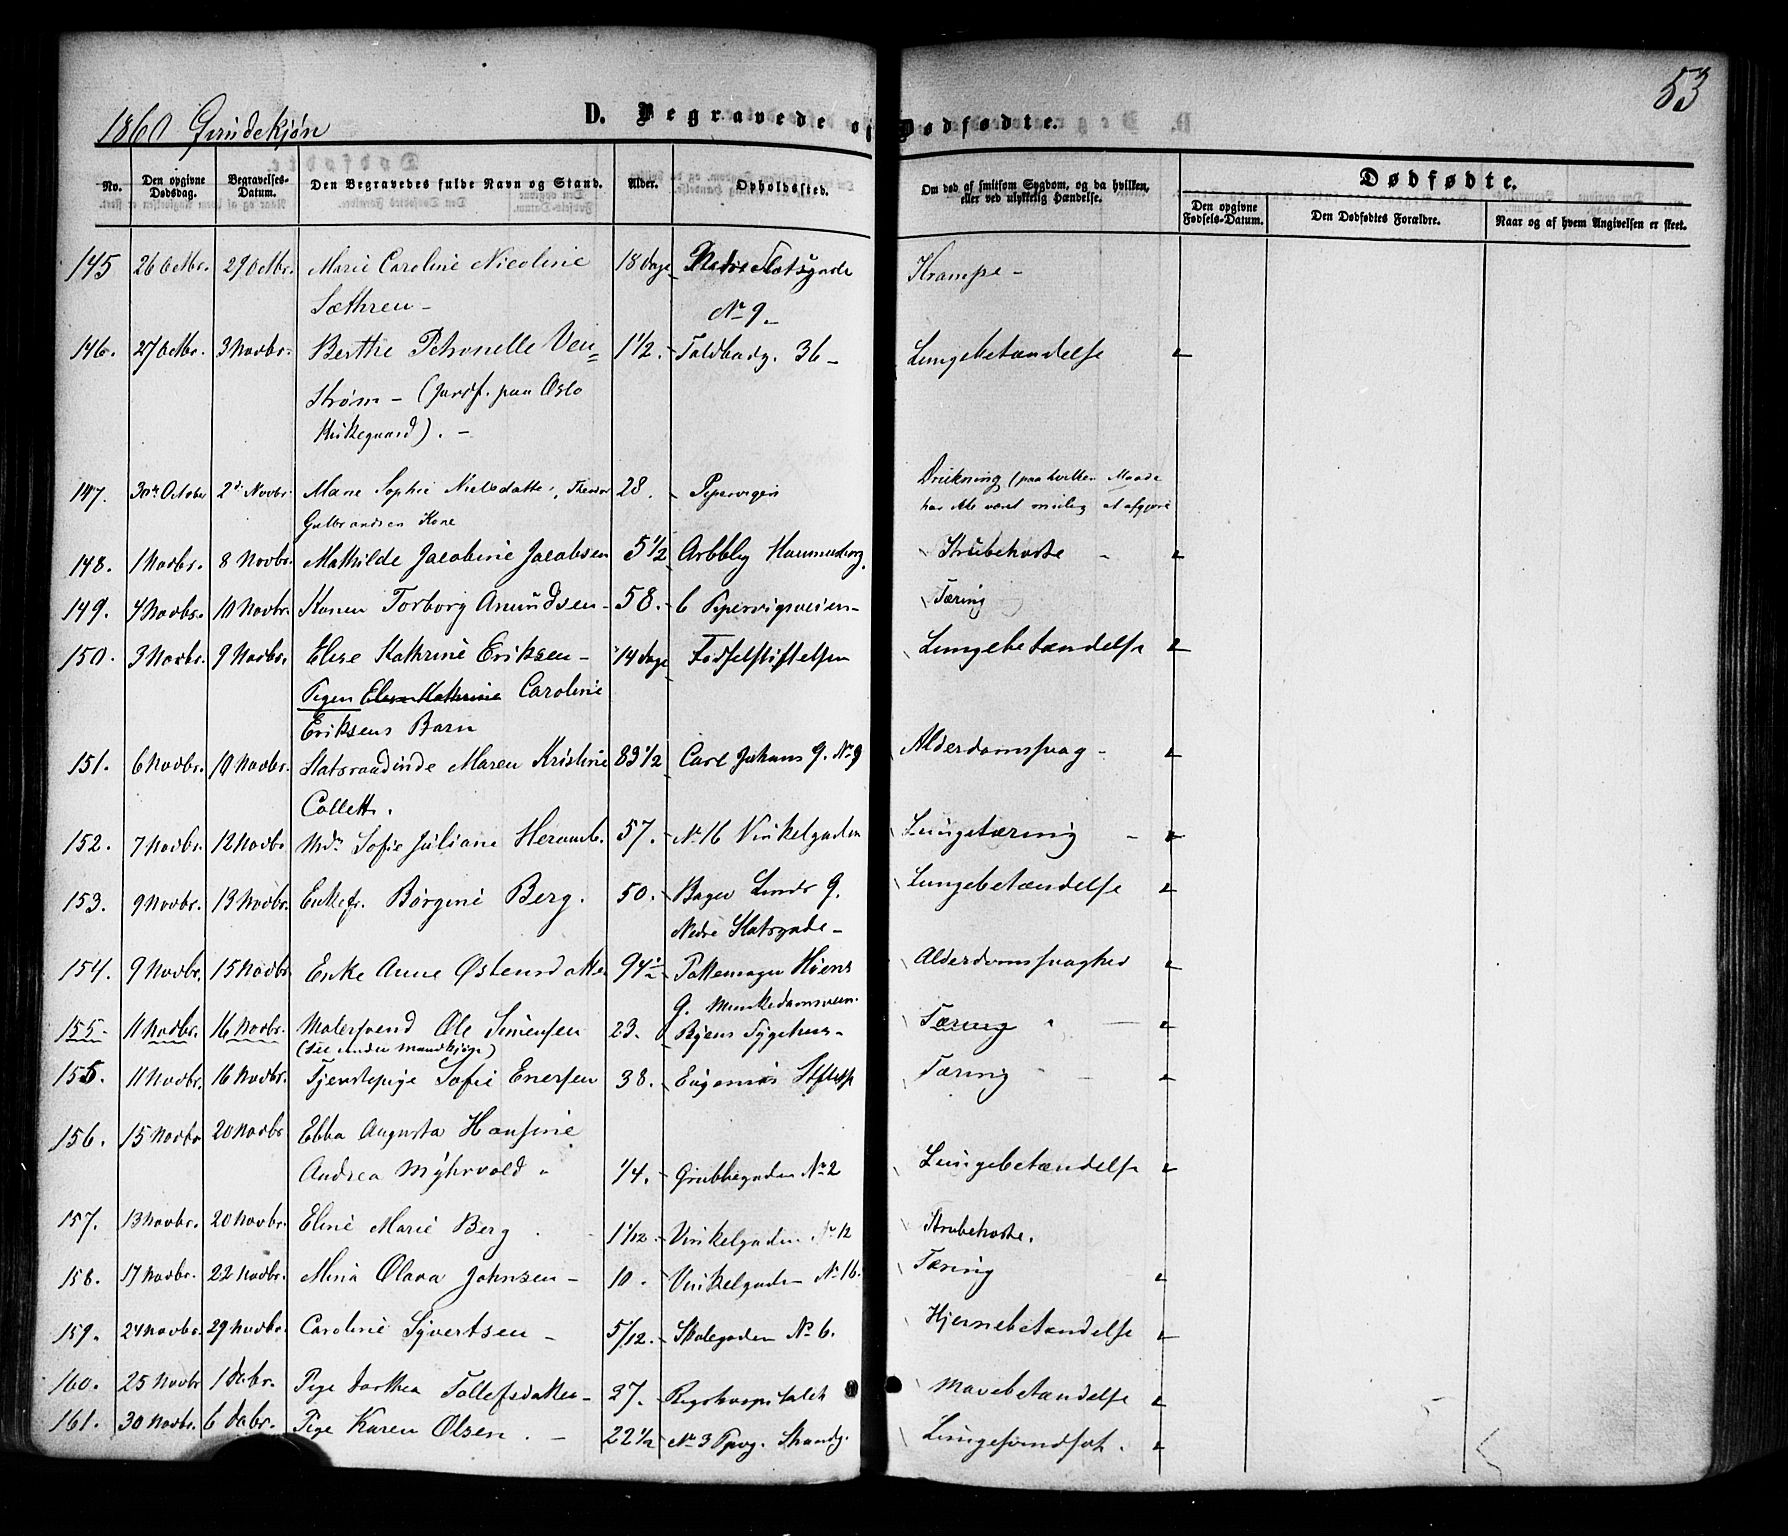 53
1860 Qvindekjøn
D. Begravede og Dødfødte.
No. Den opgivne Dødsdag. Begravelses-Datum. Den Begravedes fulde Navn og Stand. Alder. Opholdssted. Om død af smitsom Sygdom, og da hvilken, eller ved ulykkelig Hændelse. Dødfødte.
Den opgivne Fødsels-Datum. Den Dødfødtes Forældre. Naar og af hvem Angivelsen er skeet.
145 26 Octbr. 29 Octbr. Marie Caroline Nicoline 18 dage Nedre Slotsgade Krampe -
Sæthren - No 9 -
146. 27 Octbr. 3 Novbr. Berthe Petronelle Ven= 1 1/2. Toldbodg. 36 - Lungebetændelse
strøm - (Jordf. paa Oslo
Kirkegaard). -
147. 30te October 2d. Novbr. Mane Sophie Nielsdatter, Theodor 28. Pipervigen Drukning (paa hvilken Maade
Gulbrandsen Kone har ikke været mulig at afgjøre
148. 1 Novbr. 8 Novbr. Mathilde Jacobine Jacobsen 5 1/2 Arbbby Hammersborg. Strubehoste -
149. 4 Novbr. 10 Novbr. Konen Torborg Amundsen - 58. 6 Pipervigsveien - Tæring
150. 3 Novbr. 9 Novbr. Elise Kathrine Eriksen - 14 dage Fødselsstiftelsen Lungebetændelse
Pigen Elise Kathrine Caroline
Eriksens Barn
151. 6 Novbr. 10 Novbr. Statsraadinde Maren Kristine 83 1/2 Carl Johans G. No 9 Alderdomssvag -
Collett.
152. 7 Novbr. 12 Novbr. Md. Sofie Juliane Heramb. 57. No 16 Vinkelgaden Lungetæring -
153. 9 Novbr. 13 Novbr. Enkefr. Børgine Berg. 50. Bager Linds G. Lungebetændelse
Nedre Slotsgade -
154. 9 Novbr. 15 Novbr. Enke Anne Østensdatter 94 1/2 Pakkemager Høiens Alderdomssvaghed
G. Munkedamsveien.
155. 11 Novbr. 16 Novbr. Malersvend Ole Simensen 23. Byens Sygehuus - Tæring
(see under Mandkjøn)
155. 11 Novbr. 16 Novbr. Tjenestepige Sofie Enersen 38. Eugenias Stiftelse Tæring
156. 15 Novbr 20 Novbr Ebba Augusta Hansine
Andrea Myhrvold 1/4. Grubbegaden No 2 Lungebetændelse
157. 13 Novbr. 20 Novbr. Eline Marie Berg 1 1/12. Vinkelgaden No 12 Strubehoste.
158. 17 Novbr. 22 Novbr. Mina Olava Johnsen - 10. Vinkelgaden No 16. Tæring
159. 24 Novbr. 29 Novbr. Caroline Syvertsen - 5/12. Skolegaden No 6. Hjernebetændelse
160. 25 Novbr 1 Debr. Pige Dorthea Tollefsdatter - 27. Rigshospitalet Mavebetændelse
161. 30 Novbr. 6 Debr. Pige Karen Olsen. - 22 1/2 No 3 Pipvg. Strandg.